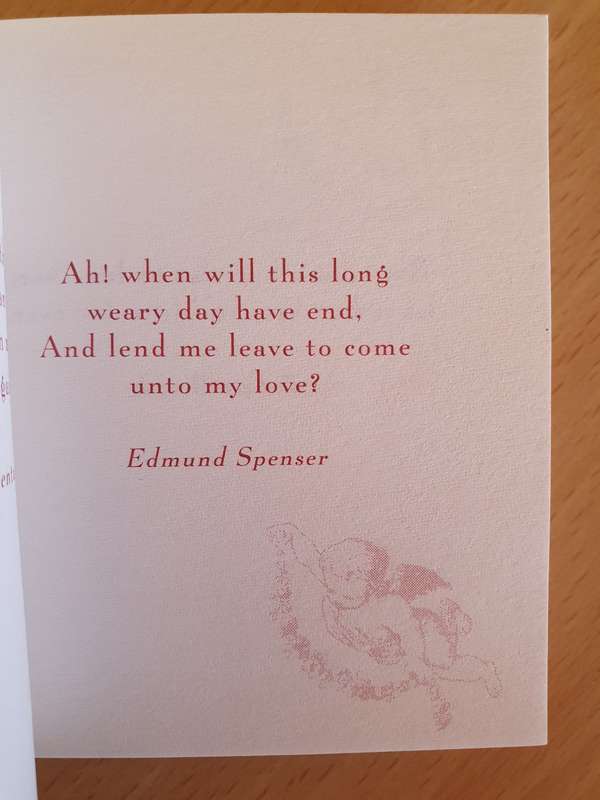 Ah! when will this long
weary day have end,
And lend me leave to come
unto my love?
Edmund Spenser